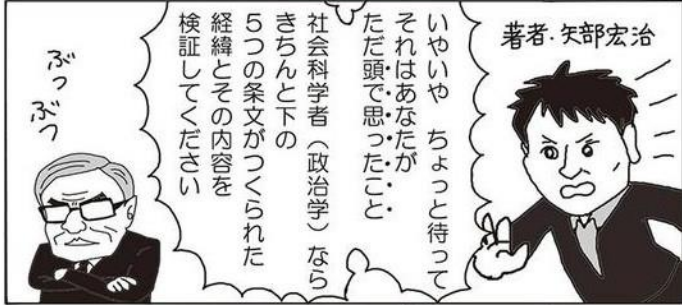 著者・矢部宏治
いやいや　ちょっと待って
それはあなたが
ただ頭で思ったこと
社会科学者（政治学）なら
きちんと下の
５つの条文がつくられた
経緯とその内容を
検証してください
ぶつ
ぶつ